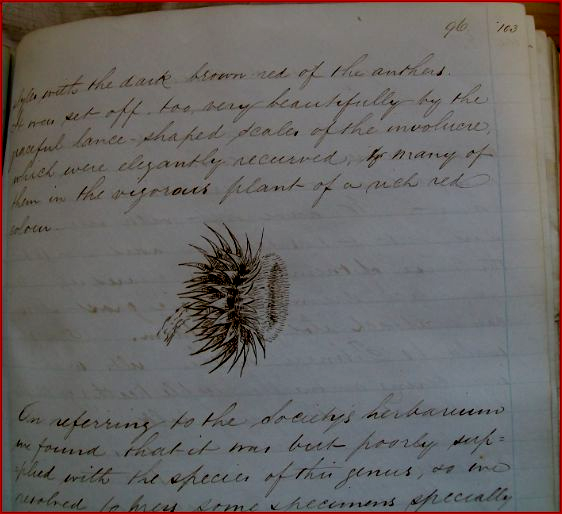 96 103
styles with the dark brown red of the anthers.
It was set off too, very beautifully by the
graceful lance-shaped scales of the involucre,
which were elegantly recurved, & many of
them in the vigorous plant of a rich red
colour.
On referring to the Society's herbarium
we found that it was but poorly sup=
=plied with the species of this genus, so we
resolved to press some specimens specially